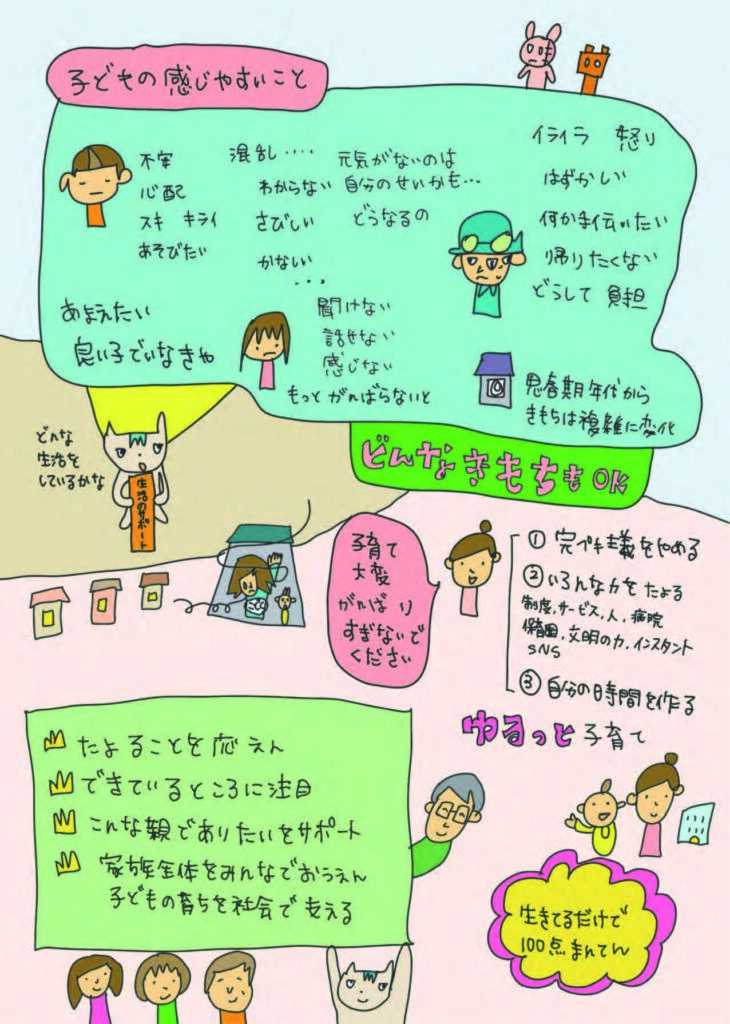 子どもの感じやすいこと
不安
心配
スキ キライ
あそびたい
混乱....
わからない
さびしい
かなしい
...
元気がないのは
自分のせいかも...
どうなるの
イライラ 怒り
はずかしい
何か手伝いたい
帰りたくない
どうして 負担
あまえたい
良い子でいなきゃ
聞けない
話せない
感じない
もっとがんばらないと
思春期年代から
きもちは複雑に変化
どんなきもちもOK
どんな
生活を
しているかな
生活のサポート
子育て
大変
がんばり
すぎないで
ください
① 完ペキ主義をやめる
② いろんな力をたよる
制度、サービス、人、病院
保育園、文明の力、インスタント
SNS
③ 自分の時間を作る
ゆるっと子育て
たよることを応えん
できているところに注目
こんな親でありたいをサポート
家族全体をみんなでおうえん
子どもの育ちを社会で支える
生きてるだけで
100点まんてん